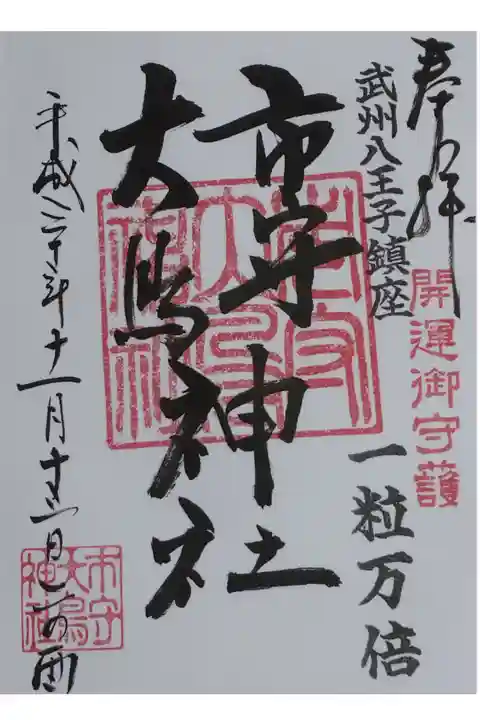 奉拝
武州八王子鎮座
開運御守護
一粒万倍
市守神社
大鳥神社
市守大鳥神社
平成三十年十一月十三日 酉
市守大鳥神社